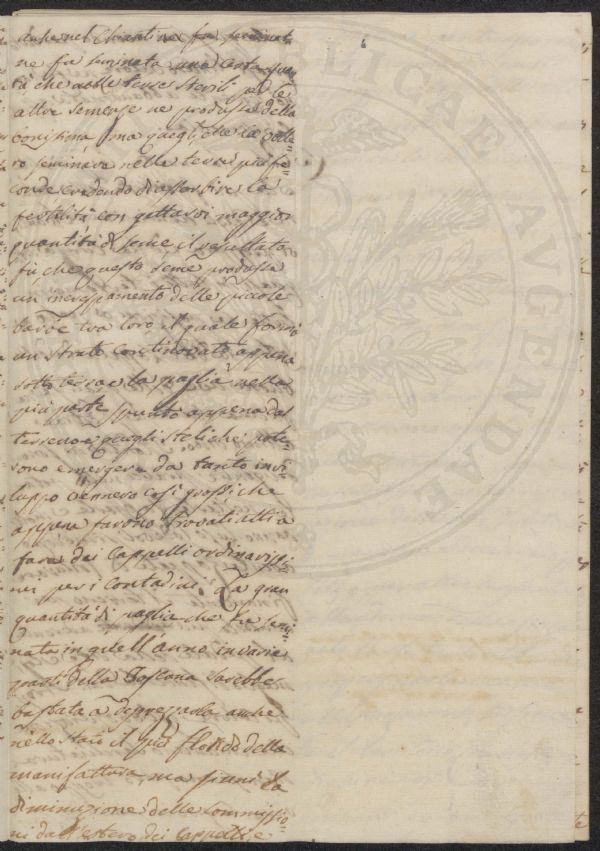 anche nel Chianti ne fu seminata
ne fu seminata una certa quan=
tà che nelle terre sterili per le
altre semenze ne produsse della
bonissima, ma quegli, che la volle=
ro seminare nelle terre più fe=
conde credendo di assorbire la
fertilità con gettarvi maggior
quantità di seme il resultato
fù, che questo seme produsse
un inceppamento delle piccole
barbe tra loro, il quale formò
un strato continovato appena
sotto terra e la paglia nella
più parte spuntò appena dal
terreno e quegli steli che pote=
rono emergere da tanto invi=
luppo vennero così grossi, che
appena furono trovati atti a
fare dei Cappelli ordinarissi=
mi per i Contadini. La gran
quantità di paglia che fu semi=
nata in quell'anno in varie
parti della Toscana sarebbe
bastata a deprezzarla anche
nello stato il più florido della
manifattura, ma giunse la
diminuzione delle Commissio=
ni dall'estero dei Cappelli, e
REIPUBLICAE AUGENDAE